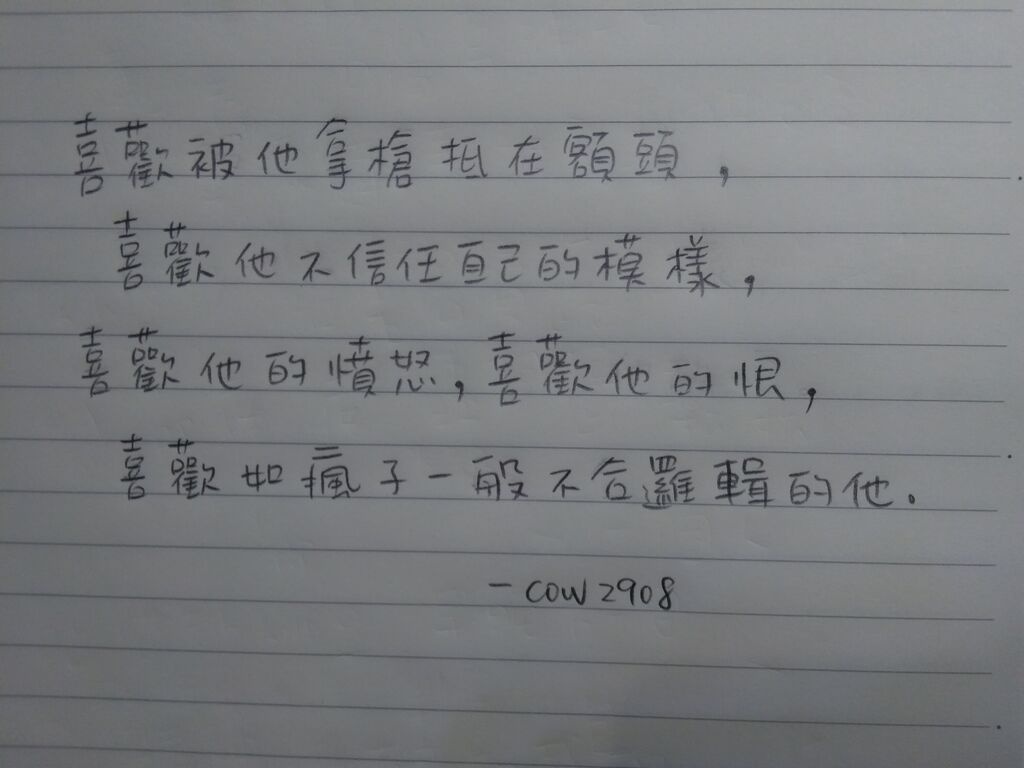 喜歡被他拿槍抵在額頭，
喜歡他不信任自己的模樣，
喜歡他的憤怒，喜歡他的恨，
喜歡如瘋子一般不合邏輯的他．
－cow2908